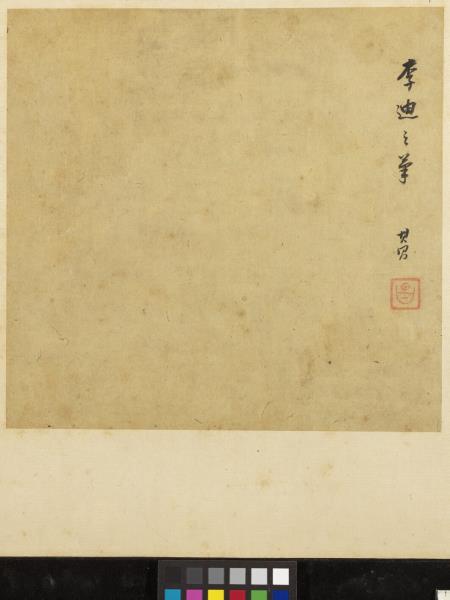 李迪之筆
其昌